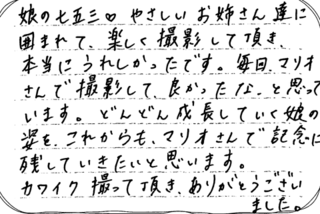 娘の七五三♡ やさしいお姉さん達に
囲まれて、楽しく撮影して頂き、
本当にうれしかったです。毎回、マリオ
さんで撮影して、良かったな、と思って
います。どんどん成長していく娘の
姿を、これからも、マリオさんで記念に
残していきたいと思います。
カワイク撮って頂き、ありがとうござい
ました。